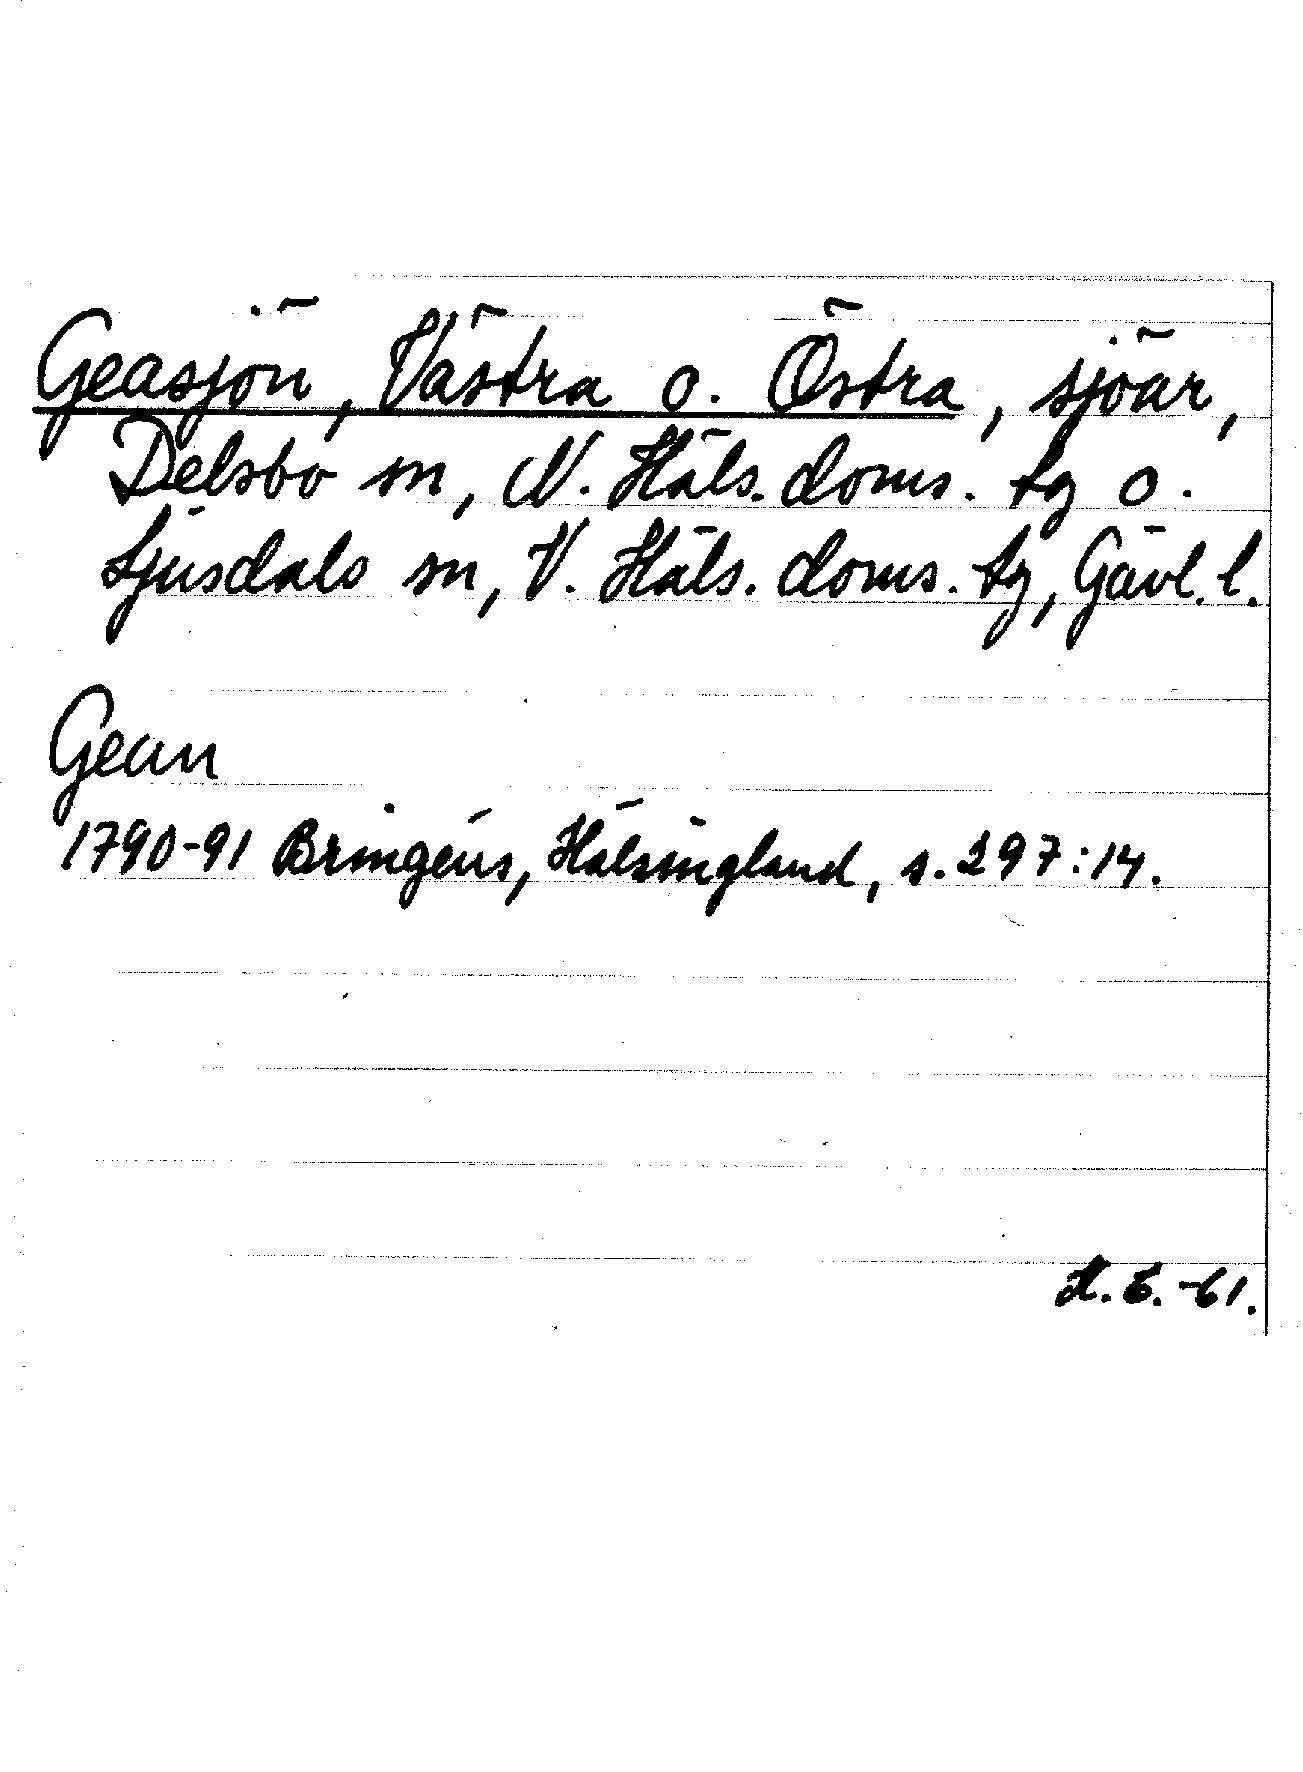 Geasjön, Västra o. Östra, sjöar,
Delsbo sn, N. Häls. doms. tg o.
Ljusdals sn, V. Häls. doms. tg, Gävl. l.
Gean
1790-91 Bringéus, Hälsingland, s. 297:14.
-61.